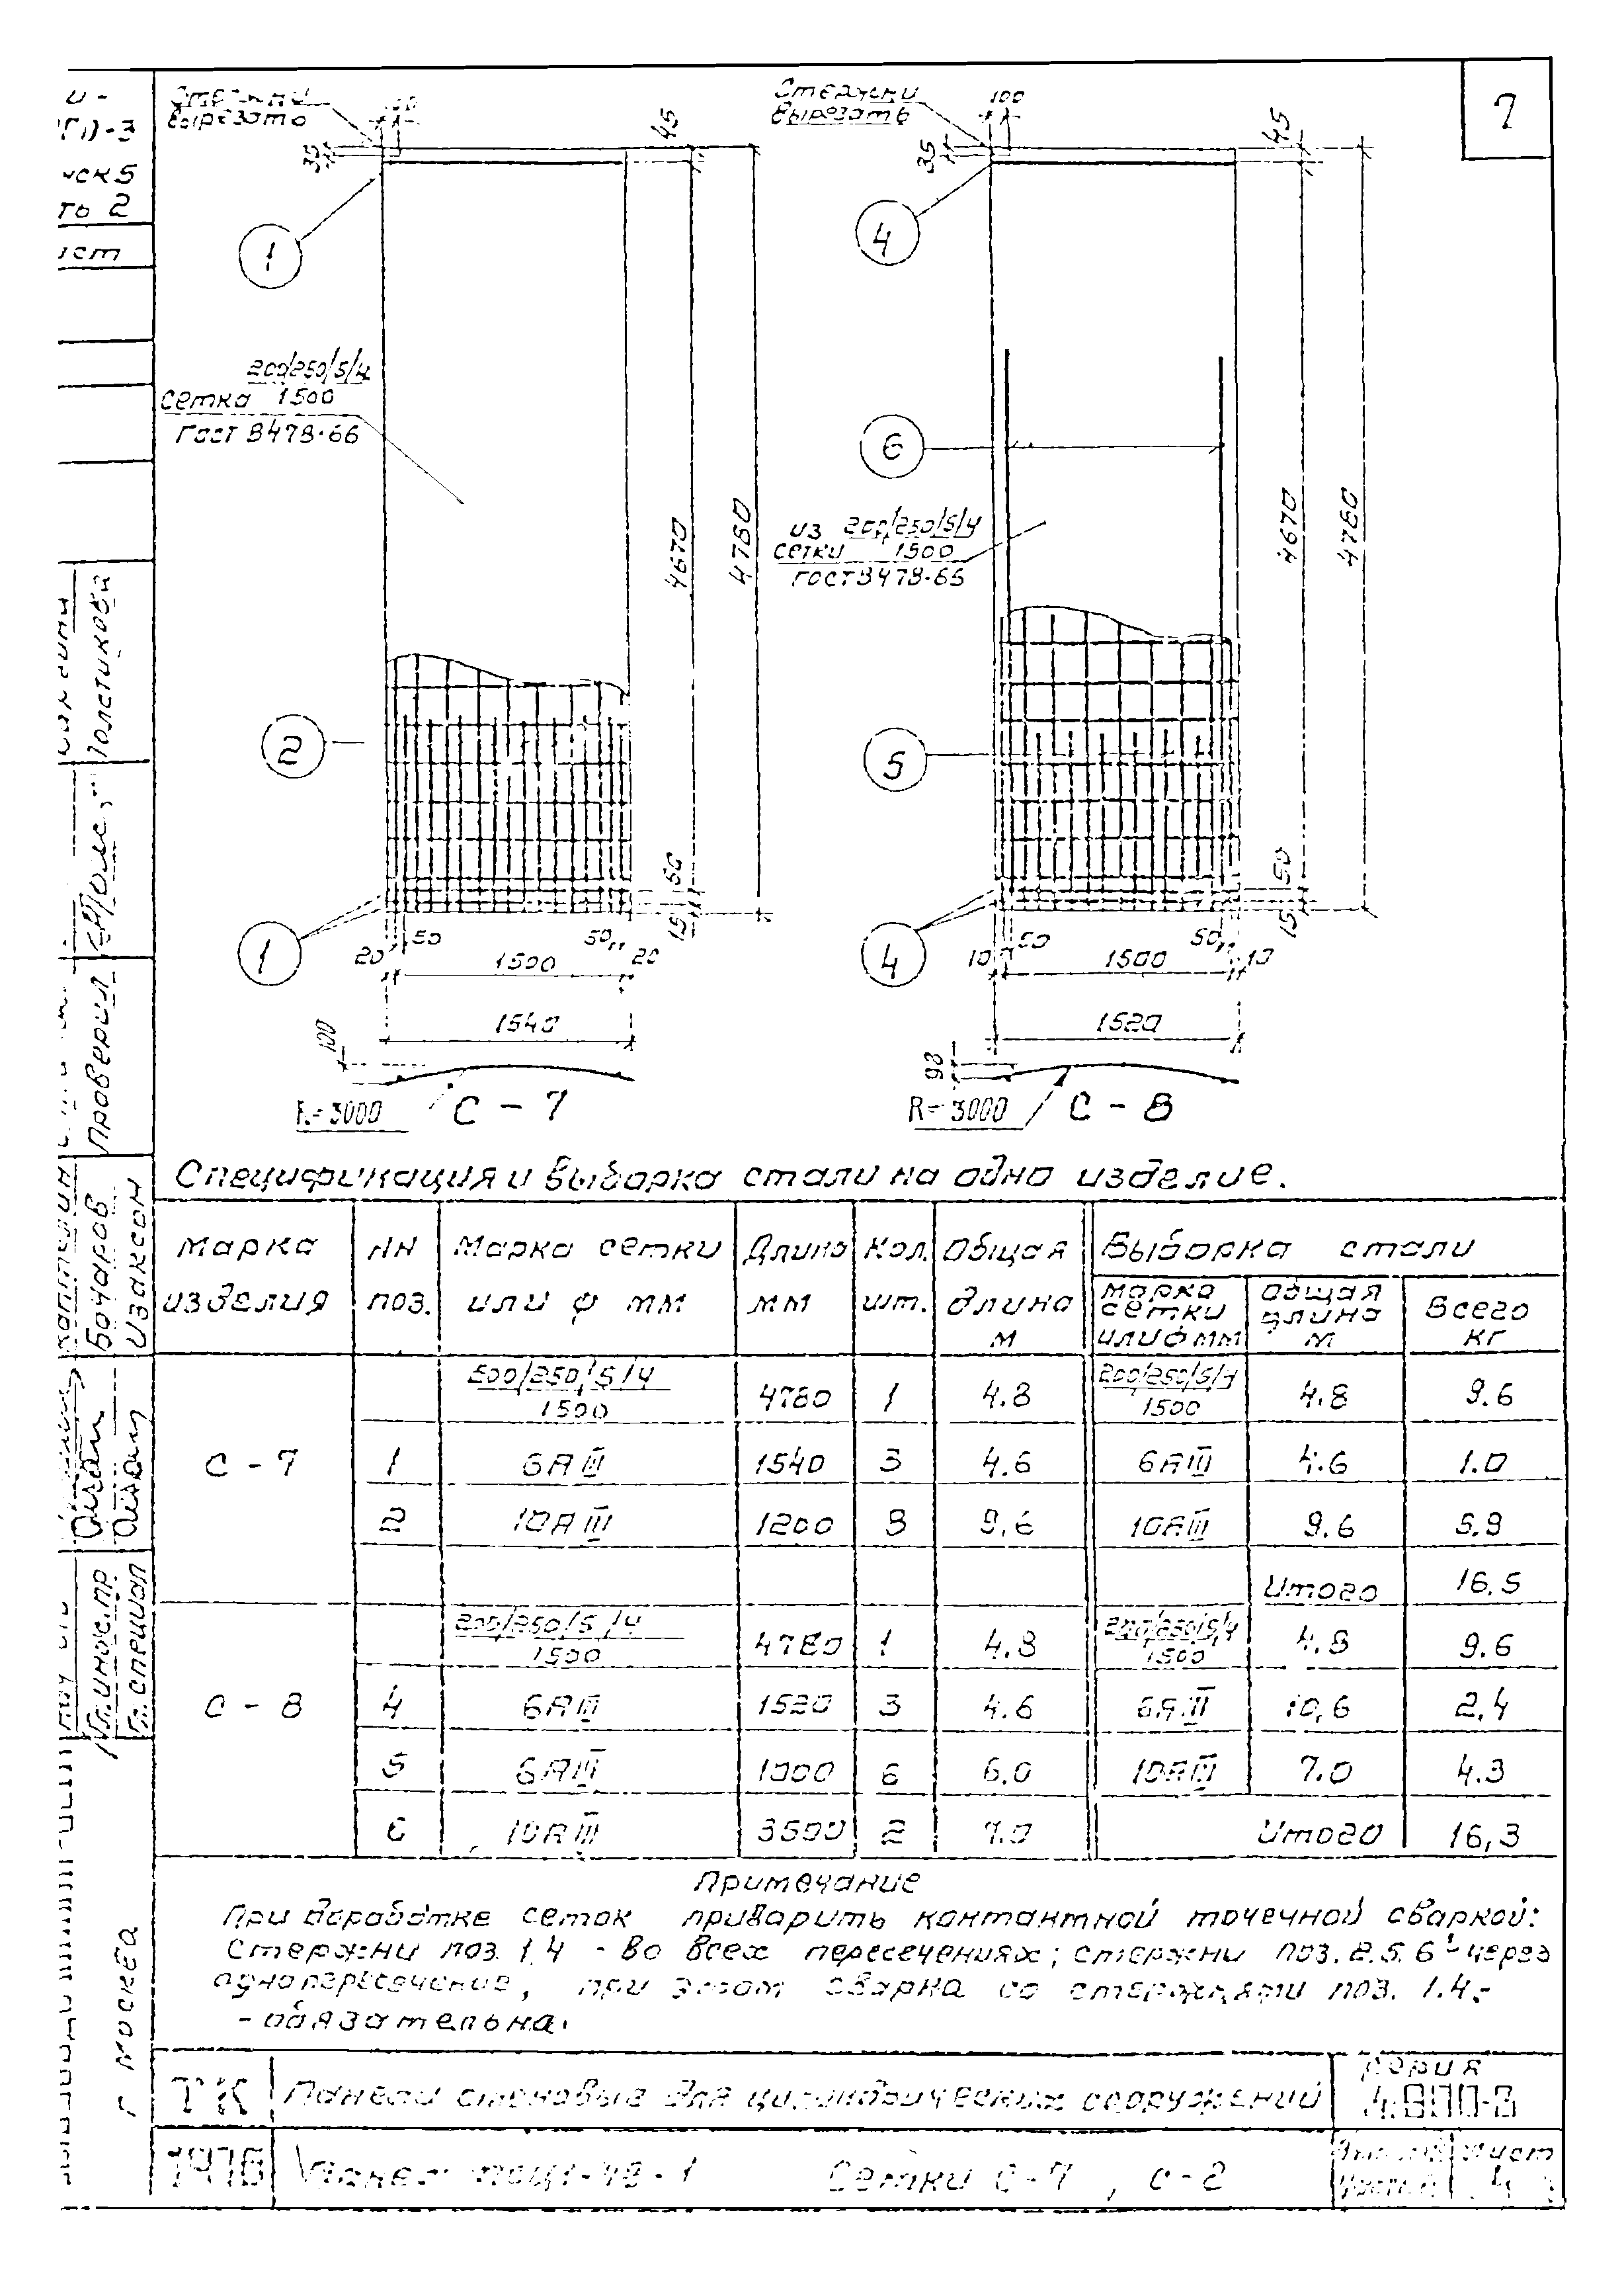 7
Стержни
вырезать
100
35
45
1
200/250/5/4
сетка 1500
гост 8478-66
2
4670
4780
50
15
1
20
50
1500
50
20
1540
100
R=3000
С - 7
Стержни
вырезать
100
35
45
4
6
из 200/250/5/4
сетки 1500
гост 8478-66
5
4670
4780
50
15
4
10
50
1500
50
10
1520
98
R=3000
С - 8
Спецификация и выборка стали на одно изделие.
Марка изделия | NN поз. | Марка сетки или ф мм | Длина мм | Кол. шт. | Общая длина м | Выборка стали
марка сетки или ф мм | общая длина м | Всего кг
200/250/5/4 1500 | 4780 | 1 | 4.8 | 200/250/5/4 1500 | 4.8 | 9.6
С - 7 | 1 | 6АIII | 1540 | 3 | 4.6 | 6АIII | 4.6 | 1.0
2 | 10АIII | 1200 | 8 | 9.6 | 10АIII | 9.6 | 5.9
Итого | 16.5
200/250/5/4 1500 | 4780 | 1 | 4.8 | 200/250/5/4 1500 | 4.8 | 9.6
С - 8 | 4 | 6АIII | 1520 | 3 | 4.6 | 6АIII | 10,6 | 2,4
5 | 6АIII | 1000 | 6 | 6.0 | 10АIII | 7.0 | 4.3
6 | 10АIII | 3500 | 2 | 7.0 | Итого | 16,3
Примечание
При доработке сеток приварить контактной точечной сваркой:
Стержни поз. 1,4 - во всех пересечениях; стержни поз. 2.5.6 - через
одно пересечение, при этом сварка со стержнями поз. 1.4.-
- обязательна.
ТК
Панели стеновые для цилиндрических сооружений
Серия
1976
Сетки С-7
Лист
4
Толстикова
Проверил
Бочаров
Изаксон
Гл. инж. пр.
Гл. специал
г Москва